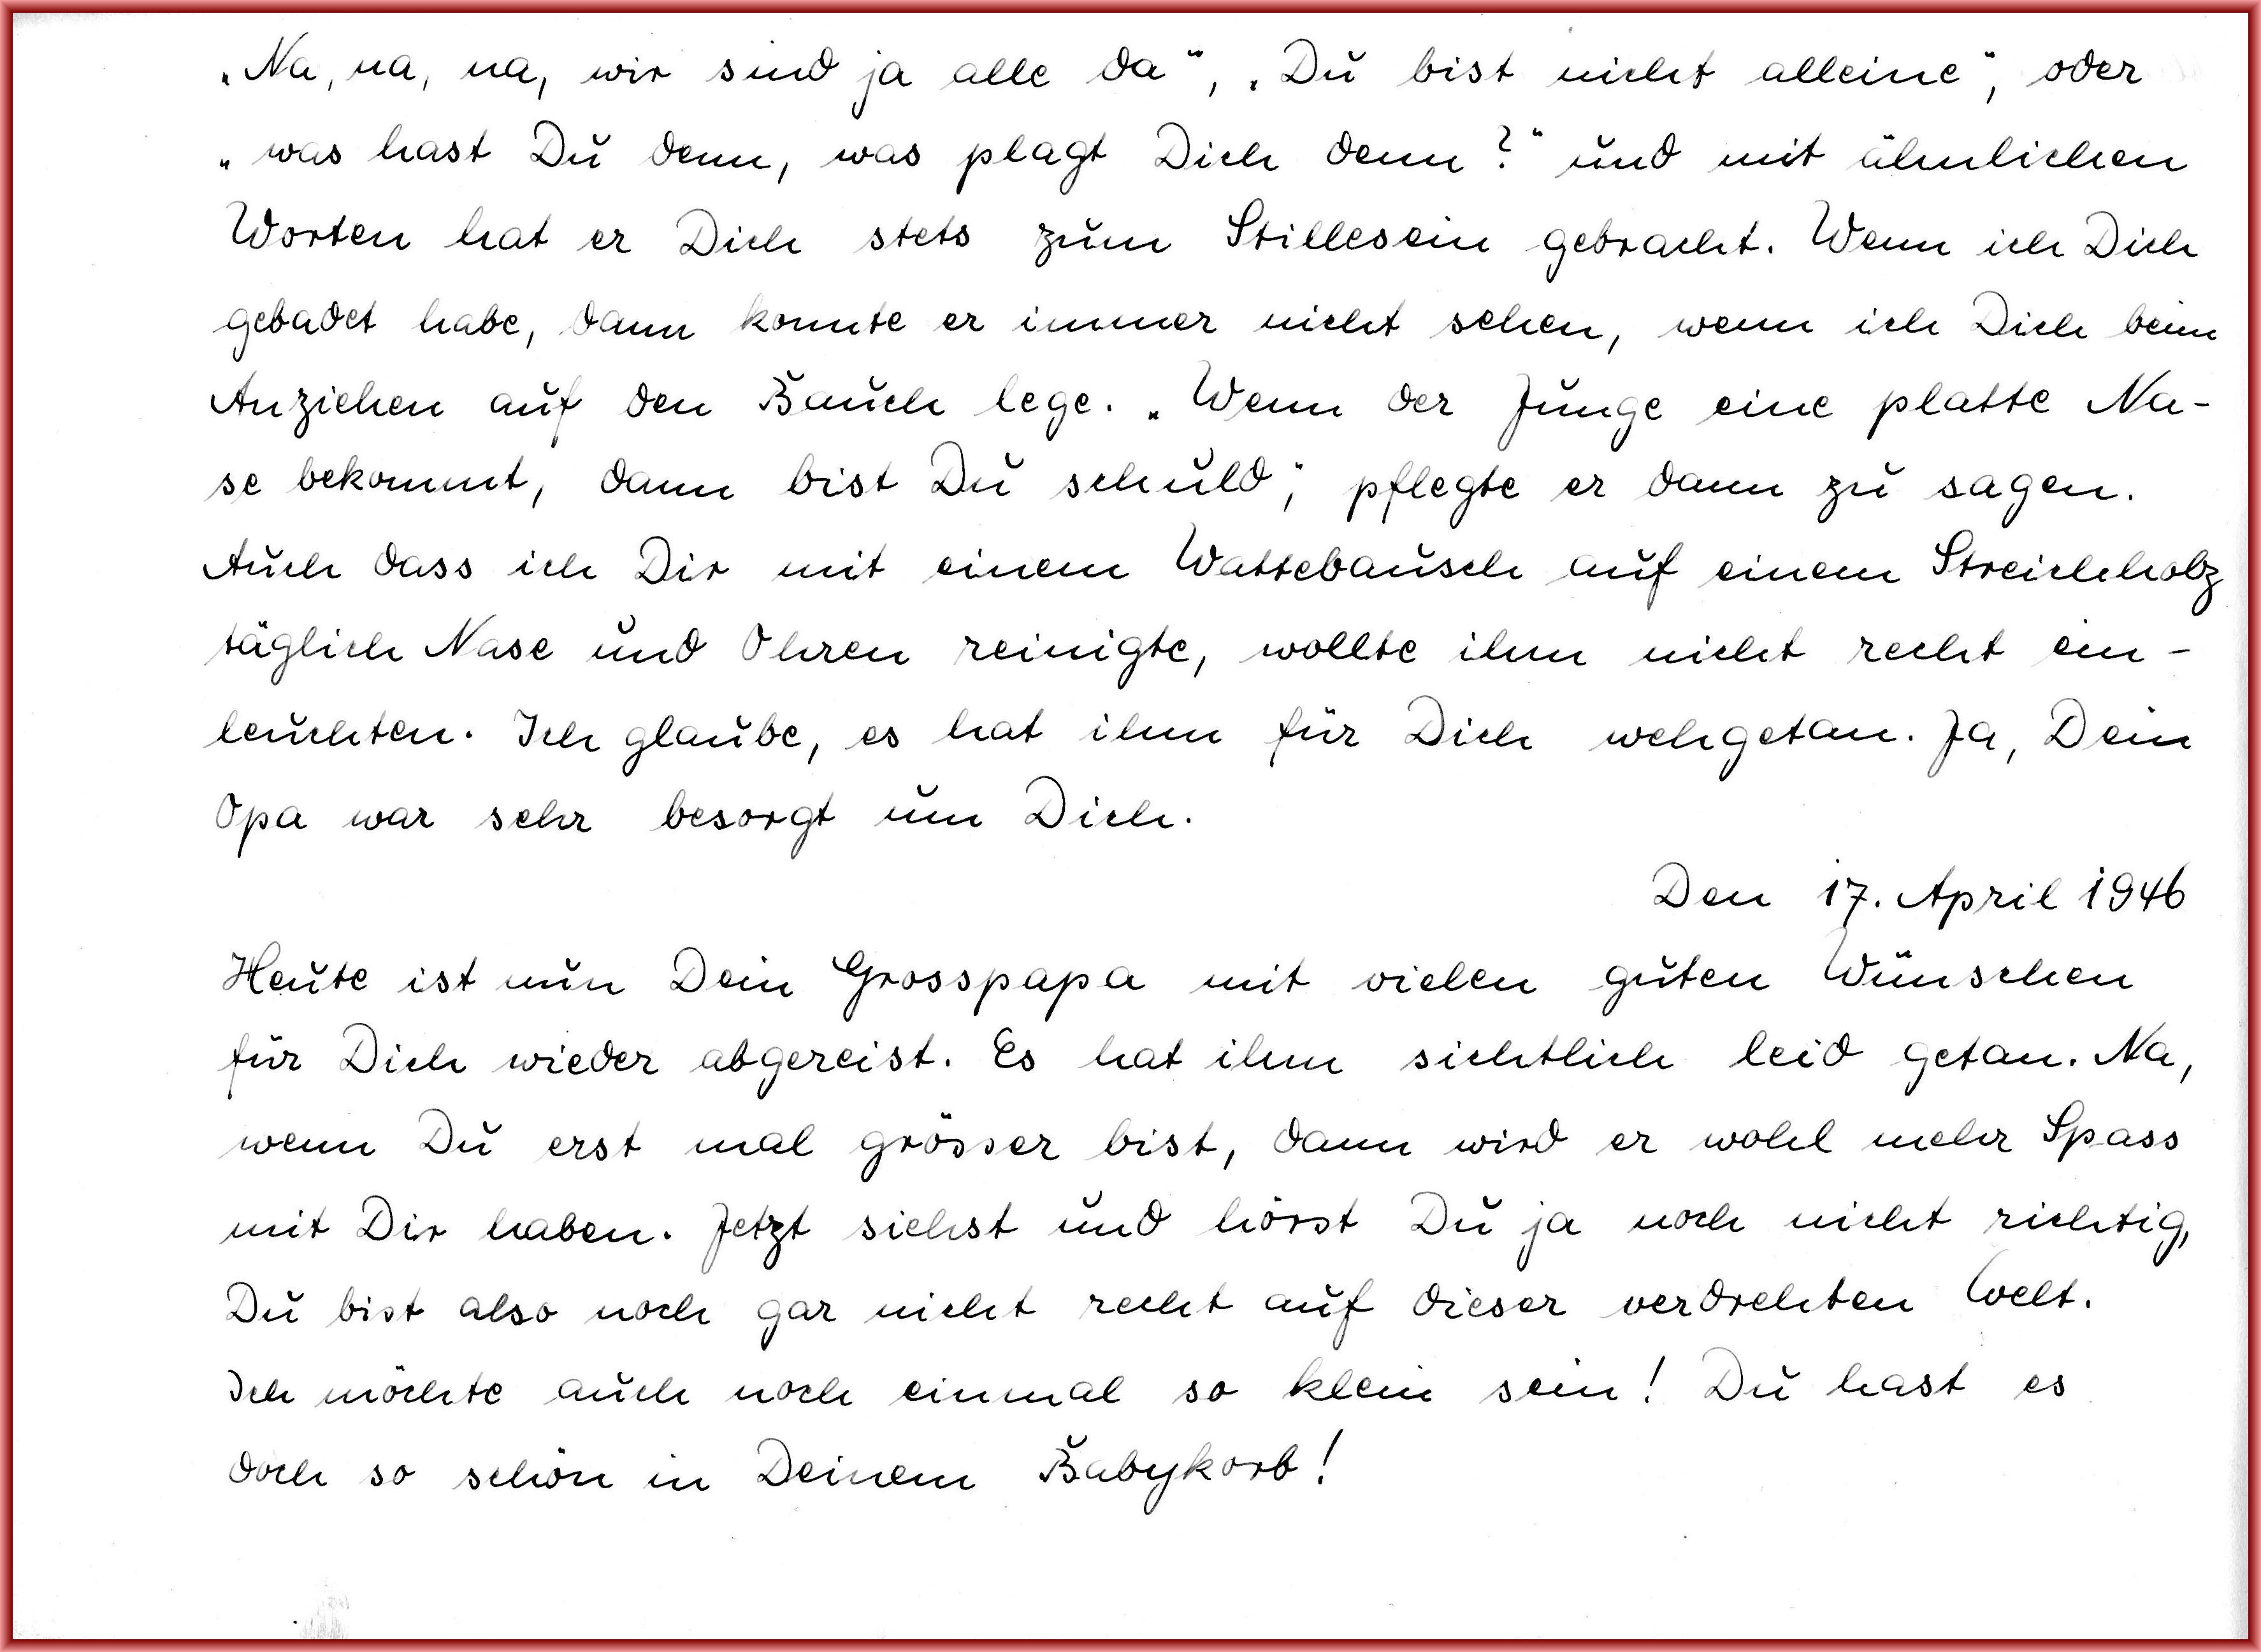 „Na, na, na, wir sind ja alle da", „Du bist nicht alleine", oder
„was hast Du denn, was plagt Dich denn?" und mit ähnlichen
Worten hat er Dich stets zum Stillesein gebracht. Wenn ich Dich
gebadet habe, dann konnte er immer nicht sehen, wenn ich Dich beim
Anziehen auf den Bauch lege. „Wenn der Junge eine platte Na-
se bekommt, dann bist Du schuld", pflegte er dann zu sagen.
Auch dass ich Dir mit einem Wattebausch auf einem Streichholz
täglich Nase und Ohren reinigte, wollte ihm nicht recht ein-
leuchten. Ich glaube, es hat ihm für Dich wehgetan. Ja, Dein
Opa war sehr besorgt um Dich.
Den 17. April 1946
Heute ist nun Dein Grosspapa mit vielen guten Wünschen
für Dich wieder abgereist. Es hat ihm sichtlich leid getan. Na,
wenn Du erst mal grösser bist, dann wird er wohl mehr Spass
mit Dir haben. Jetzt siehst und hörst Du ja noch nicht richtig,
Du bist also noch gar nicht recht auf dieser verdrehten Welt.
Ich möchte auch noch einmal so klein sein! Du hast es
doch so schön in Deinem Babykorb!